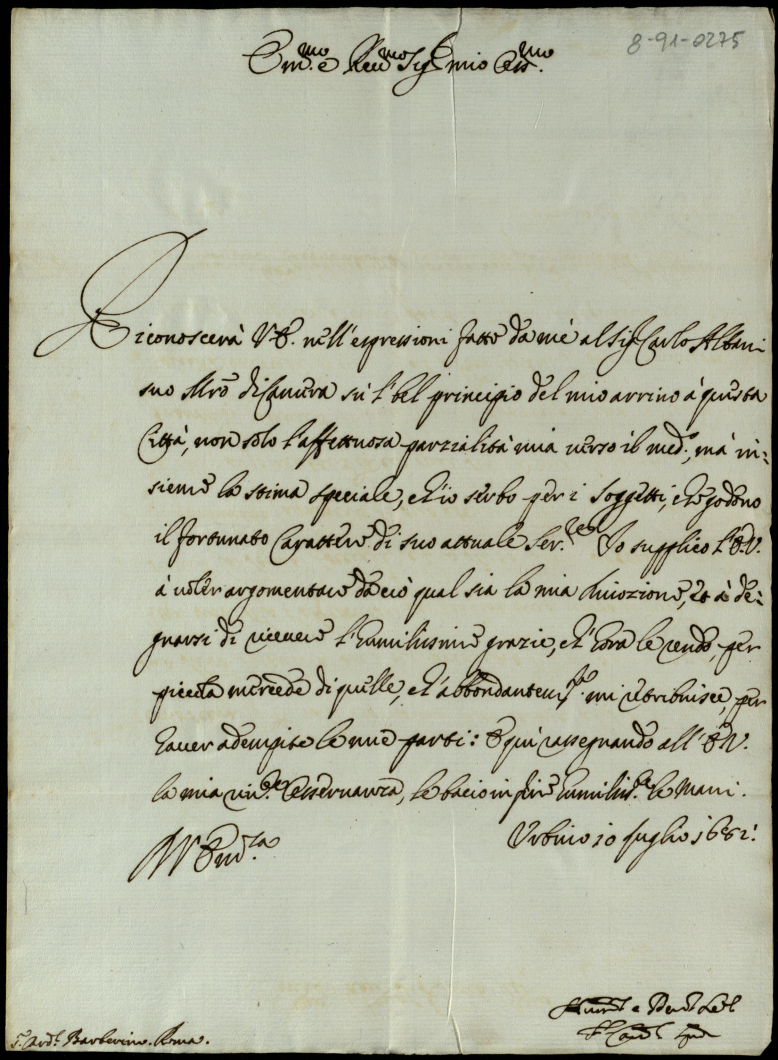 8-91-0275
Em.mo e Reu.mo Sig.r mio Oss.mo
Riconoscerà V.E. nell'espressioni fatte da me al Sig.r Carlo Albani
suo Mro di Camera sù l'bel principio del mio arriuo à questa
Città, non solo l'affettuosa parzialità mia uerso il med.o, mà in-
sieme la stima speciale, ch'io serbo per i soggetti, che godono
il fortunato Carattere di suo attuale Ser.re Io supplico l'E.V.
à uoler argomentare da ciò qual sia la mia diuozione, et à de-
gnarsi di riceuere l'humilissime grazie, ch'hora le rendo, per
picciola mercede di quelle, ch'abbondantem.te mi retribuisce, per
hauer adempite le mie parti: E quì rassegnando all'E.V.
la mia osseruanza, le bacio in fine humiliss.te le Mani.
Vrbino 10 luglio 1682.
V. Em.za
Card. Barberino. Roma.